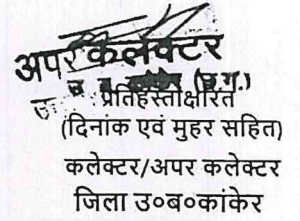 अपर कलेक्टर
उ ब (छ.ग.)
प्रतिहस्ताक्षरित
(दिनांक एवं मुहर सहित)
कलेक्टर/अपर कलेक्टर
जिला उ०ब०कांकेर